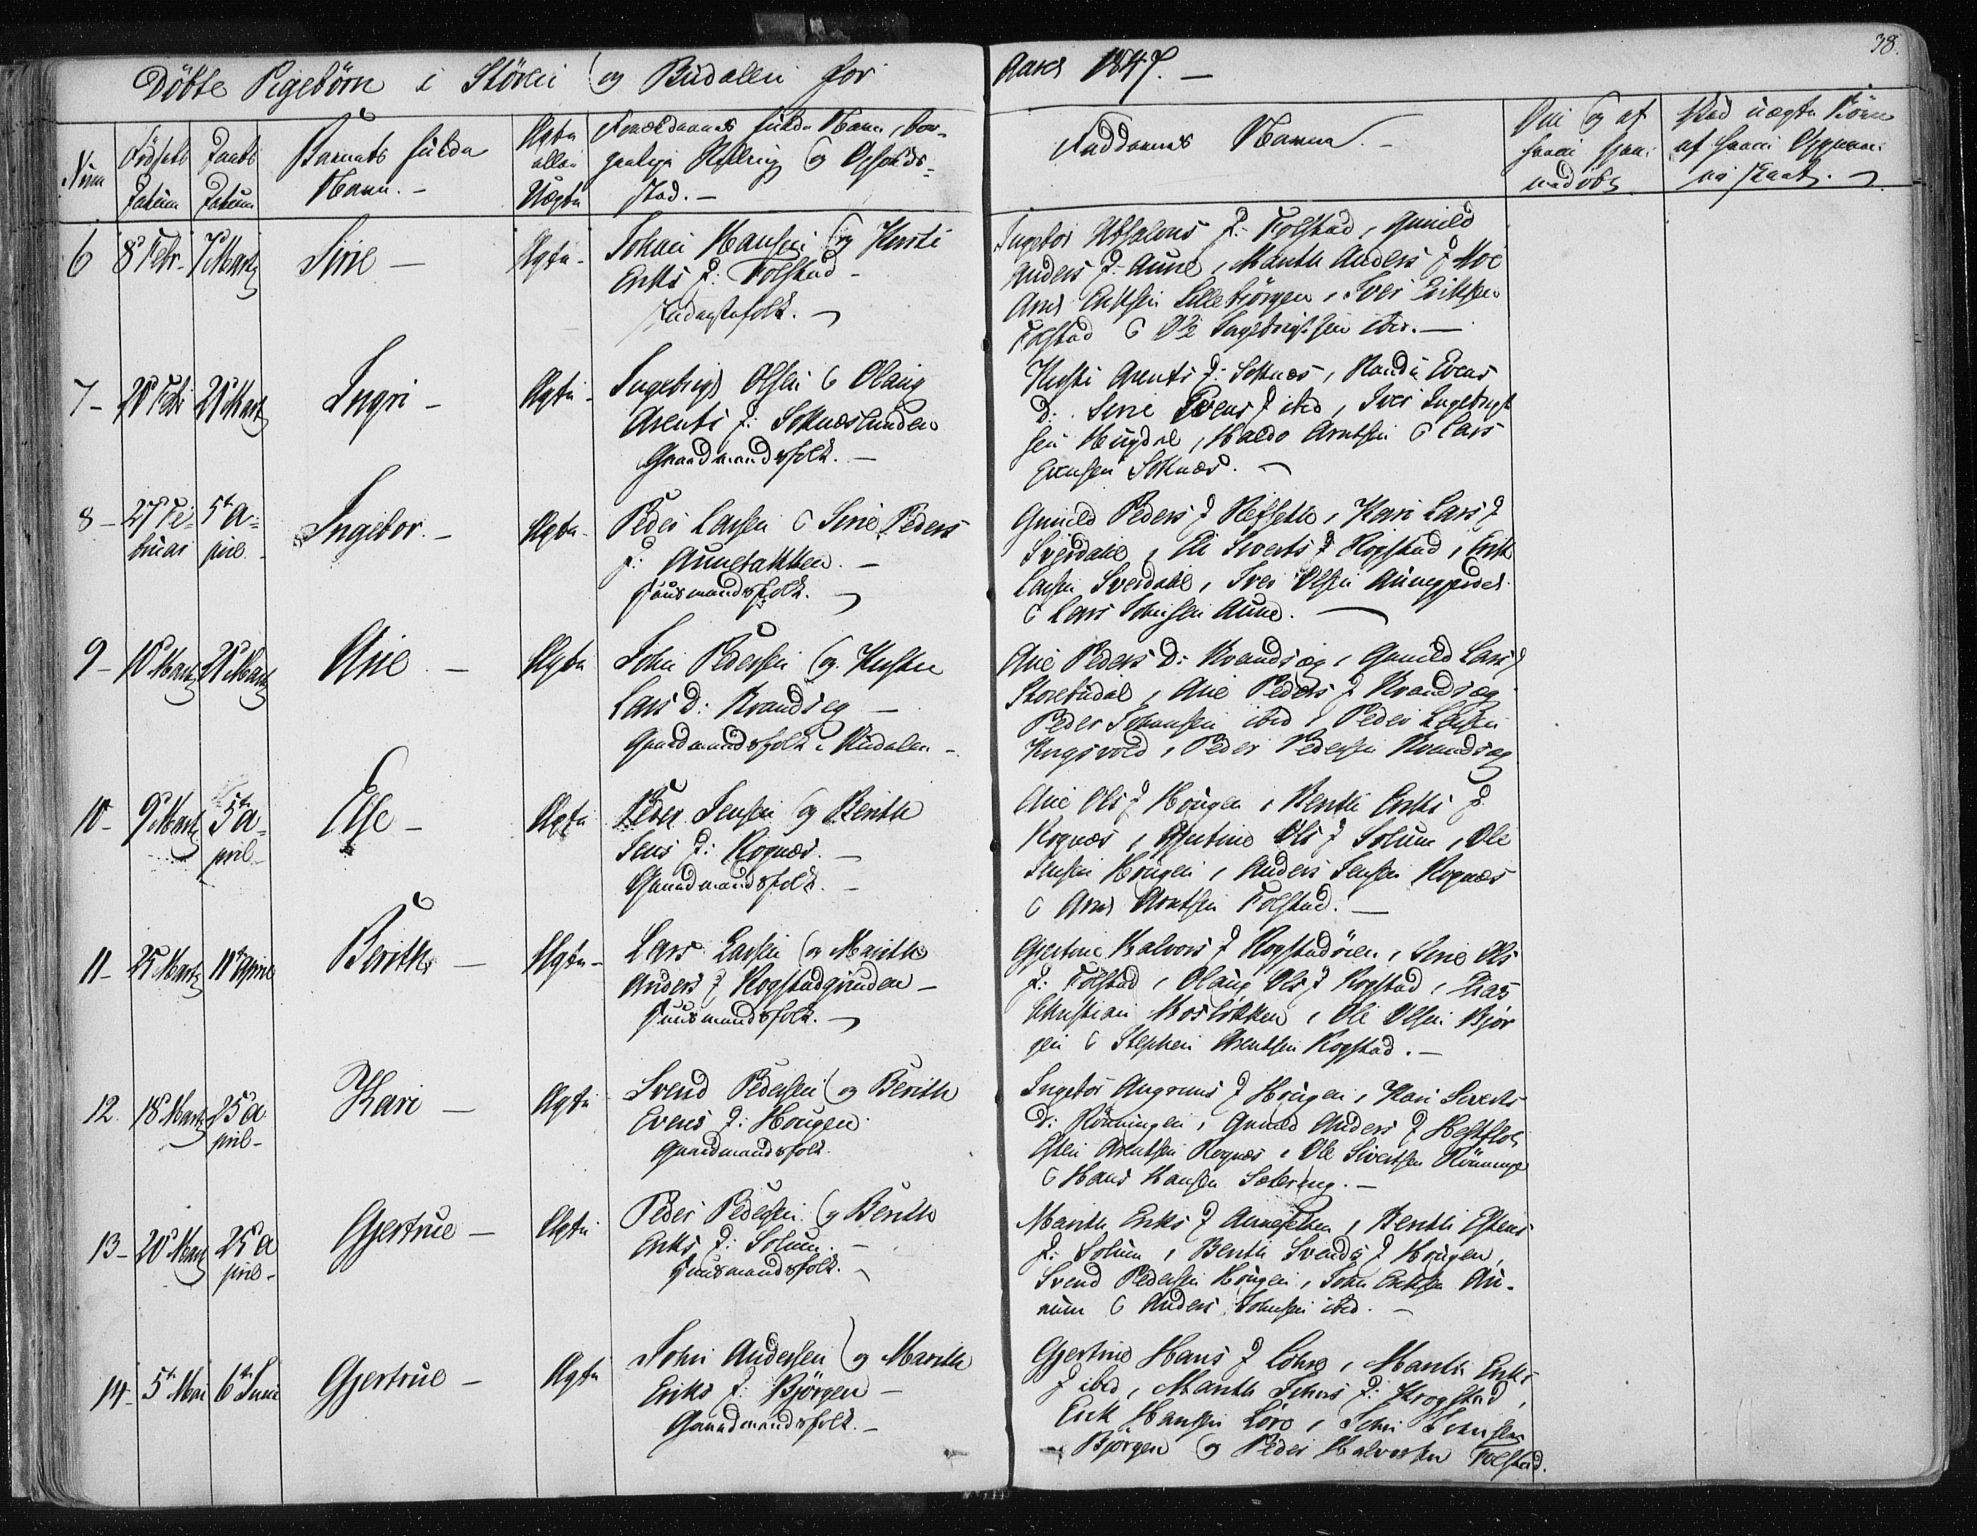 38.
Döbte Pigebörn i Stören og Budalen for Aaret 1847. —
Num
Födsels Datum
Daabs Datum
Barnets fulde Navn. —
Ægte eller Uægte
Forældrenes fulde Navn, bor-
gerlige Stilling og Opholds-
sted. —
Faddernes Navne. —
6 8d Febr. 7 Martz Sirie — Ægte.
Johan Hansen og Kirsti
Eriks D: Folstad —
Inderstefolk. —
Ingebor Absalons D: Folstad, Gunild
Anders D: Aune, Marith Anders D Moe
Arnt Eriksen Lillebjörgen, Iver Eriksen
Folstad & Ole Ingebrigtsen ibid. —
7 — 20d Febr 21d Martz Ingri — Ægte —
Ingebrigt Olsen & Olaug
Arents D: Soknæslunden
Gaardmandsfolk. —
Kirsti Arents D: Soknæs, Randi Evens
D: Sirie Evens D ibid, Iver Ingebrigt
sen Hugdal, Haldo Arntsen & Lars
Evensen Soknæs. —
8 — 27d Fe-
bruar 5t A-
pril Ingebor. — Ægte.
Peder Larsen & Sirie Peders
D: Aunebakken. —
Huusmandsfolk. —
Gunild Peders D Refseth, Kari Lars D
Sverdahl, Eli Siverts D Rogstad, Erik
Larsen Sverdahl, Iver Olsen Aunegjerdet
& Lars Johnsen Aune. —
9 — 10d Martz 21d Martz Ane — Ægte
John Pedersen og Kirsten
Lars D: Krandsæg —
Gaardmandsfolk i Budalen —
Ane Peders D: Krandsæg, Gunild Lars D
Storebudal, Ane Peders D Krandsæg
Peder Johansen ibid, Peder Larsen
Kingsvold, Peder Pedersen Krandsæg
10 — 9d Martz 5t A-
pril — Else — Ægte
Peder Jensen og Berith
Jens D: Rognæs. —
Gaardmandsfolk. —
Ane Ols D Hougen, Berith Eriks D
Rognæs, Gjertine Ols D Solum, Ole
Jensen Hougen, Anders Jensen Rognæs
& Arnt Arntsen Folstad. —
11 — 25 Martz 11d April Berith — Ægte —
Lars Larsen og Marith
Anders D Rogstadgrinden —
Huusmandsfolk. —
Gjertine Halvors D Rogstadöien, Sirie Ols
D: Folstad, Olaug Ols D Rogstad, Elias
Christian Moslökken, Ole Olsen Björ
gen & Stephen Arentsen Rogstad. —
12. 18d Martz 25d A
pril — Kari — Ægte
Svend Pedersen og Berith
Evens D: Hougen.
Gaardmandsfolk.
Ingebor Angrims D Hougen, Kari Siverts
D: Rönningen, Gunild Anders D Hestflot
Esten Arentsen Rognæs, Ole Sivertsen Rönninge
& Hans Hansen Sætering. —
13 — 20d Martz 25d A
pril — Gjertrue — Ægte
Peder Pedersen og Berith
Eriks D: Solum. —
Huusmandsfolk. —
Marith Eriks D Aunefelten, Berith Estens
D: Solum, Berith Svends D Hougen,
Svend Pedersen Hougen, John Eriksen Au-
num & Anders Johnsen ibid. —
14 — 5t Mai 6te Juni Gjertrue — Ægte
John Andersen og Marith
Eriks D: Björgen —
Gaardmandsfolk. —
Gjertrue Hans D Löhre, Marith Eriks
D ibid, Marith Johns D: Krogstad,
Erik Hansen Löre, John
Björgen og Peder Halvorsen Folstad.